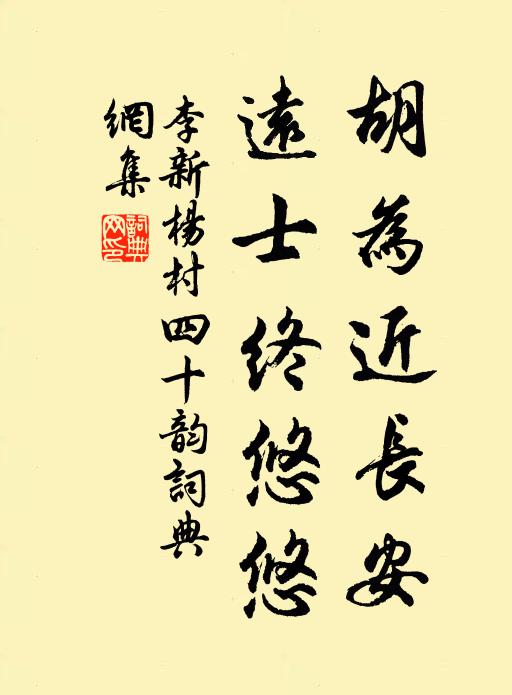 胡為近長安
遠士終悠悠
李新楊村四十韵詞典
網集
詞典網印